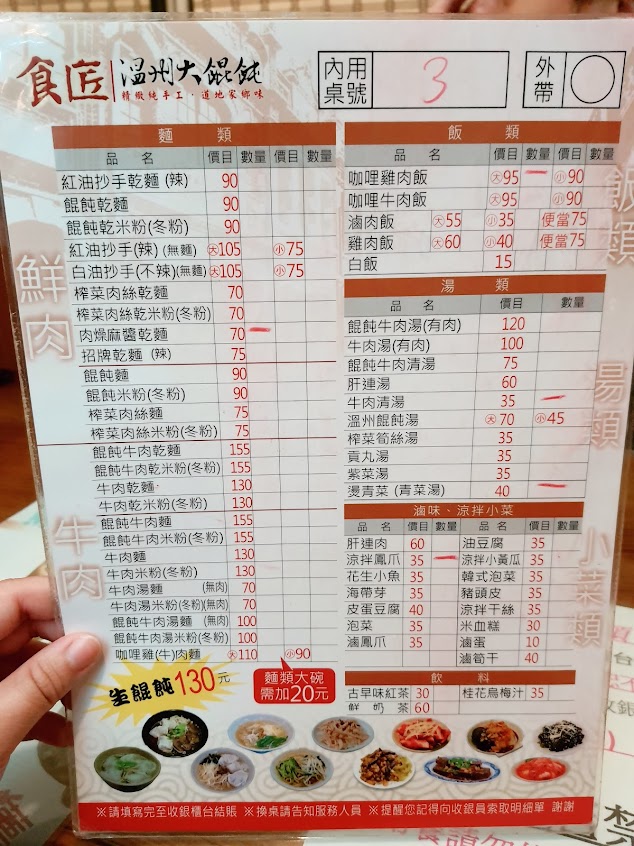 食匠 溫州大餛飩
精緻純手工・道地家鄉味
內用桌號 3 外帶
麵類
品名 價目 數量 價目 數量
紅油抄手乾麵(辣) 90
餛飩乾麵 90
餛飩乾米粉(冬粉) 90
紅油抄手(辣)(無麵) 大105 小75
白油抄手(不辣)(無麵) 大105 小75
榨菜肉絲乾麵 70
榨菜肉絲乾米粉(冬粉) 70
肉燥麻醬乾麵 70
招牌乾麵(辣) 75
餛飩麵 90
餛飩米粉(冬粉) 90
榨菜肉絲麵 75
榨菜肉絲米粉(冬粉) 75
餛飩牛肉乾麵 155
餛飩牛肉乾米粉(冬粉) 155
牛肉乾麵 130
牛肉乾米粉(冬粉) 130
餛飩牛肉麵 155
餛飩牛肉米粉(冬粉) 155
牛肉麵 130
牛肉米粉(冬粉) 130
牛肉湯麵 (無肉) 70
牛肉湯米粉(冬粉)(無肉) 70
餛飩牛肉湯麵 (無肉) 100
餛飩牛肉湯米粉(冬粉) 100
咖哩雞(牛)肉麵 大110 小90
鮮肉
牛肉
生餛飩130元
麵類大碗
需加20元
飯類
品名 價目 數量 價目
咖哩雞肉飯 大95 小90
咖哩牛肉飯 大95 小90
滷肉飯 大55 小35 便當75
雞肉飯 大60 小40 便當75
白飯 15
飯類
湯類
品名 價目 數量
餛飩牛肉湯(有肉) 120
牛肉湯(有肉) 100
餛飩牛肉清湯 75
肝連湯 60
牛肉清湯 35
溫州餛飩湯 大70 小45
榨菜筍絲湯 35
貢丸湯 35
紫菜湯 35
燙青菜(青菜湯) 40
湯類
滷味、涼拌小菜
品名 價目 數量 品名 價目 數量
肝連肉 60 油豆腐 35
涼拌鳳爪 35 涼拌小黃瓜 35
花生小魚 35 韓式泡菜 35
海帶芽 35 豬頭皮 35
皮蛋豆腐 40 涼拌干絲 35
泡菜 35 米血糕 30
滷鳳爪 35 滷蛋 10
滷筍干 40
小菜類
飲料
古早味紅茶 30 桂花烏梅汁 35
鮮奶茶 60
※請填寫完至收銀櫃台結賬 ※換桌請告知服務人員 ※提醒您記得向收銀員索取明細單 謝謝